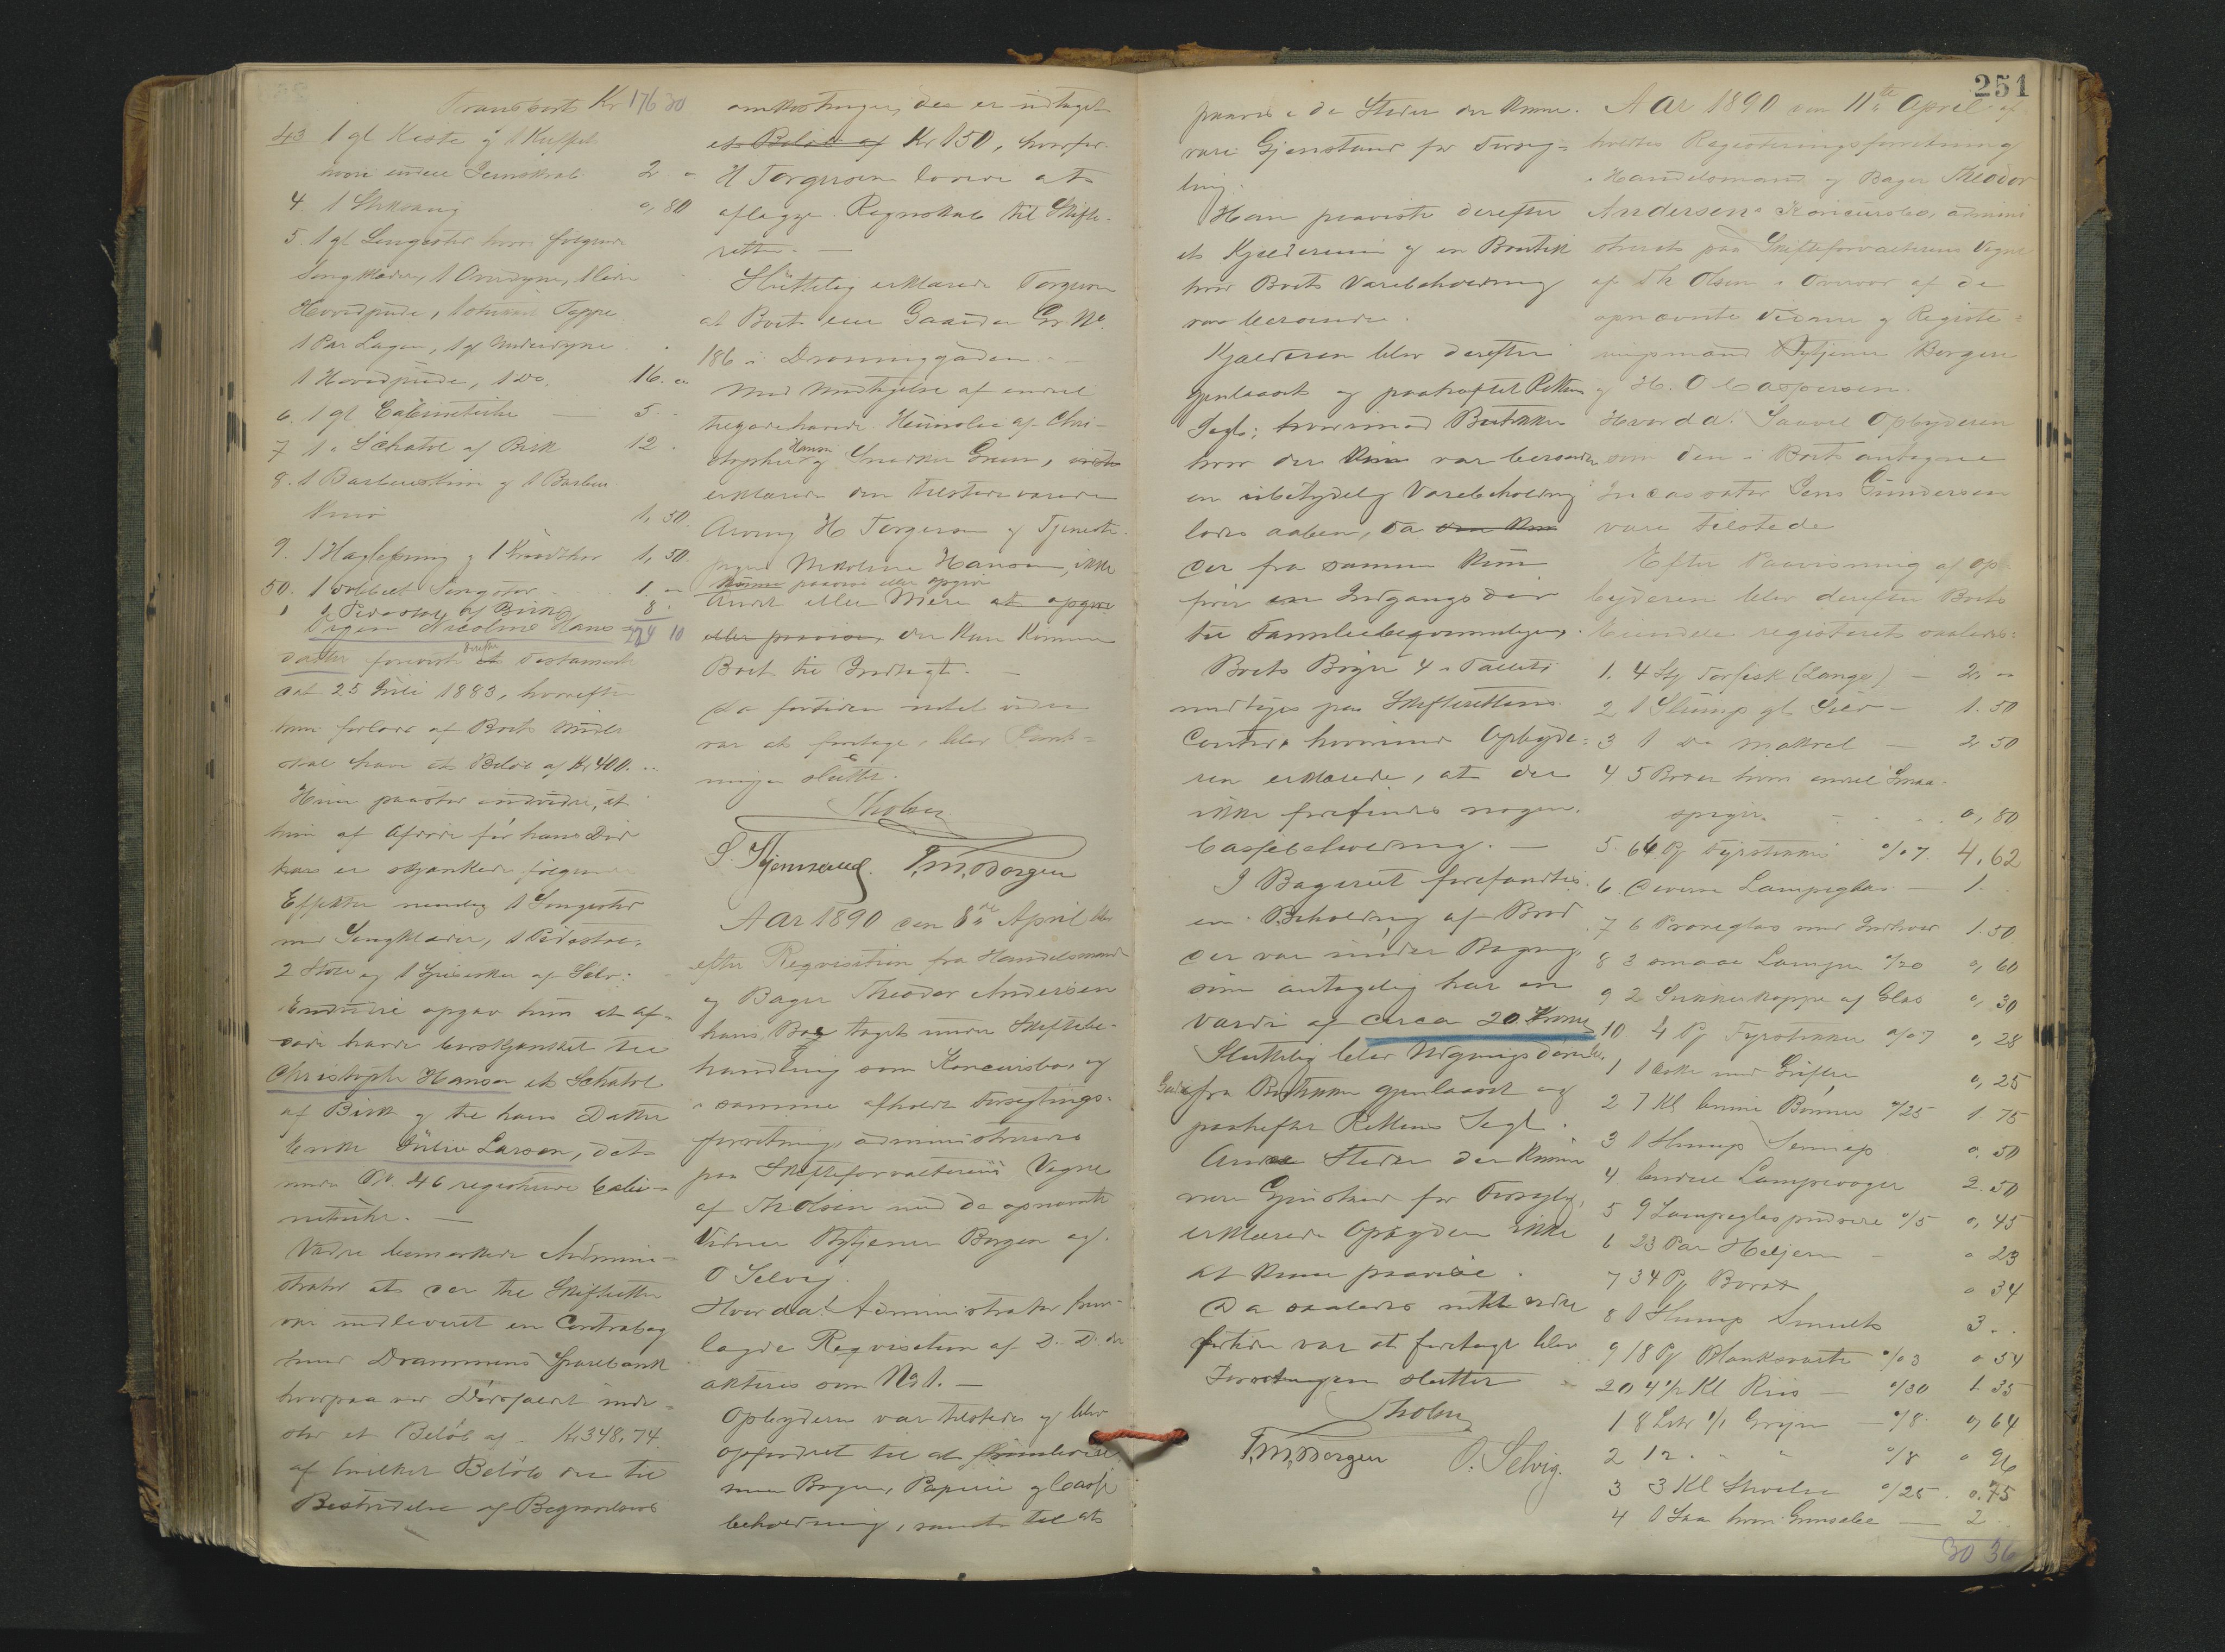 Transport Kr 176 30
43 1 gl Kiste og 1 Kuffert
hvori endeel Jernskrab 2 "
4. 1 Slirkvang 0,80
5. 1 gl Sengested hvori følgende
Sengklæder, 1 Overdyne, 1 liden
Hovedpude, 1 Teppe
1 Par Lagen, 1 gl Underdyne
1 Hovedpude, 1 do. 16. "
6. 1 gl 5. "
7 1 " Schatol af Birk 12 "
8. 1 Barbeerskrin og 1 Barbeer
kniv 1,50.
9. 1 Haglepung og 1 Krudthor 1,50.
50. 1 dobbelt Sengested 1. "
1 1 Pidestol af Birk 8 "
Pigen Nicoline Hans 224 10
datter foreviste derefter et Testamente
dat 25 Juli 1883, hvorefter
hun forlods af Boets Midler
skal have et Beløb af Kr 400.
Hun paastod endvidere, at
hun af Afdøde før hans Død
har er skjænket følgende
Effekter nemlig 1 Sengested
med Sengklæder, 1 Pidestol,
2 Stole og 1 Spiseske af Sølv.
Endvidere opgav hun at af-
døde havde bortskjænket til
Christopher Hansen et Schatol
af Birk og til hans Datter
Enke Julie Larsen, det
under No. 46 registrerede Cabi-
netsuhr.
Videre bemærkede Admini-
strator at der til Skifteretten
var indleveret en Contrabog
med Drammens Sparebank
hvorpaa ved Dødsfaldet inde-
stod et Beløb af Kr 348,74.
af hvilket Beløb der til
Bestridelse af Begravelses
omkostninger, der er udtaget
et Beløb af Kr 150, hvorfor
H Torgersen lovede at
aflægge Regnskab til Skifte-
retten.
Sluttelig erklærede Torgersen
at Boet eier Gaarden Gr. No.
186 i Dronninggaden
Med Undtagelse af endeel
tilgodehavende Huusleie af Chri-
stopher Hansen og Snedker Green, vidste
erklærede den tilstedeværende
Arving H Torgersen og Tjeneste
pigen Nikoline Hansen, ikke
kunne paavise eller opgive
Andet eller Mere at opgive
eller paavise, der kan komme
Boet til Indtægt.
Da fortiden intet videre
var at foretage, blev Forret-
ningen sluttet.
Th Olsen
S. Stjernrand. T. M. Borgen
Aar 1890 den 8de April blev
efter Reqvisition fra Handelsmand
og Bager Theodor Andersen
hans Bo taget under Skiftebe-
handling som Koncursbo, og
i samme afholdt Forseglings-
forretning, administreredes
paa Skifteforvalterens Vegne
af Th Olsen med de opnævnte
Vidner Bytjener Borgen og
O Selvig.
Hvorda! Administrator frem-
lagde Reqvisition af D. D. der
akteres som No 1.
Opbyderen var tilstede og blev
opfordret til at fremlevere
sine Bøger, Papirer og Casse
beholdning, samt til at
251
paavise de Steder der kunne
være Gjenstand for Forseg-
ling.
Han paaviste derefter
et Kjælderrum og en Boutik
hvor Boets Varebeholdning
var beroende.
Kjælderen blev derefter
gjenlaaset og paahæftet Rettens
Segl; hvorimod Butikken
hvor der kun var beroende
en ubetydelig Varebeholdning
lodes aaben, da den kun
der fra samme kun
fører en Indgangsdør
til Familiebeqvemmeligen.
Boets Bøger 4 i Tallet
medtoges paa Skifterettens
Contor hvorimod Opbyde-
ren erklærede, at der
ikke forefindes nogen
Cassebeholdning.
I Bageriet forefandtes
en Beholdning af Brød
der var under Bagning,
som antagelig har en
Værdi af circa 20 Kroner
Sluttelig blev Udgangsdøren
fra Butikken gjenlaaset og
paaheftet Rettens Segl.
Andre Steder der kunne
være Gjenstand for Forsegling,
erklærede Opbyderen ikke
at kunne paavise.
Da saaledes intet videre
fortiden var at foretage blev
Forretningen sluttet
Th Olsen
T. M. Borgen O. Selvig.
Aar 1890 den 11te April af
holdtes Registreringsforretning
i Handelsmand og Bager Theodor
Andersens Koncursbo, admini
streret paa Skifteforvalterens Vegne
af Th Olsen i Overvær af de
opnævnte Vidner og Registe-
ringsmænd Bytjener Borgen
og H. O Caspersen.
Hvorda! Saavel Opbyderen
som den i Boet antagne
Incassator Jens Gundersen
vare tilstede
Efter Paavisning af Op
byderen blev derefter Boets
Eiendele registreret saaledes:
1. 4 Stk Torfisk (Lange) — 2. "
2 1 Slump gl Sild — 1.50
3 1 do Makrel — 2 50
4 5 Boxer hvori endeel Smaa
spiger. 0,80
5. 66 Pk Fyrstikker 0/07. 4,62
6. Diverse Lampeglas — 1.
7 6 Prøveglas med Indhold 1.50
8 3 smaae Lamper 0/20 0,60
9 2 Sukkerkopper af Glas 0,30
10 4 Pk Fyrstikker 0/07 0,28
1 1 Æske med Grifler 0,25
2 7 Kl brune Bønner 0/25 1 75
3 1 Slump Sennep 0.50
4 Endeel Lampevæger 2 50
5 9 Lampeglaspudsere 0/5 0,45
6 23 Par Heljern — 0 23
7 34 Pk Borax 0 34
8 1 Slump Smults 3 "
9 18 Pk Blanksværte 0/03 0 54
20 4 1/2 Kl Riis — 0/30 1 35
1 8 Ltr 1/1 Gryn — 0/8 0,64
2 12 " " 0/8 0 96
3 3 Kl Stivelse 0/25 0.75
4 1 Saa hvori Grønsæbe — 2
30 36